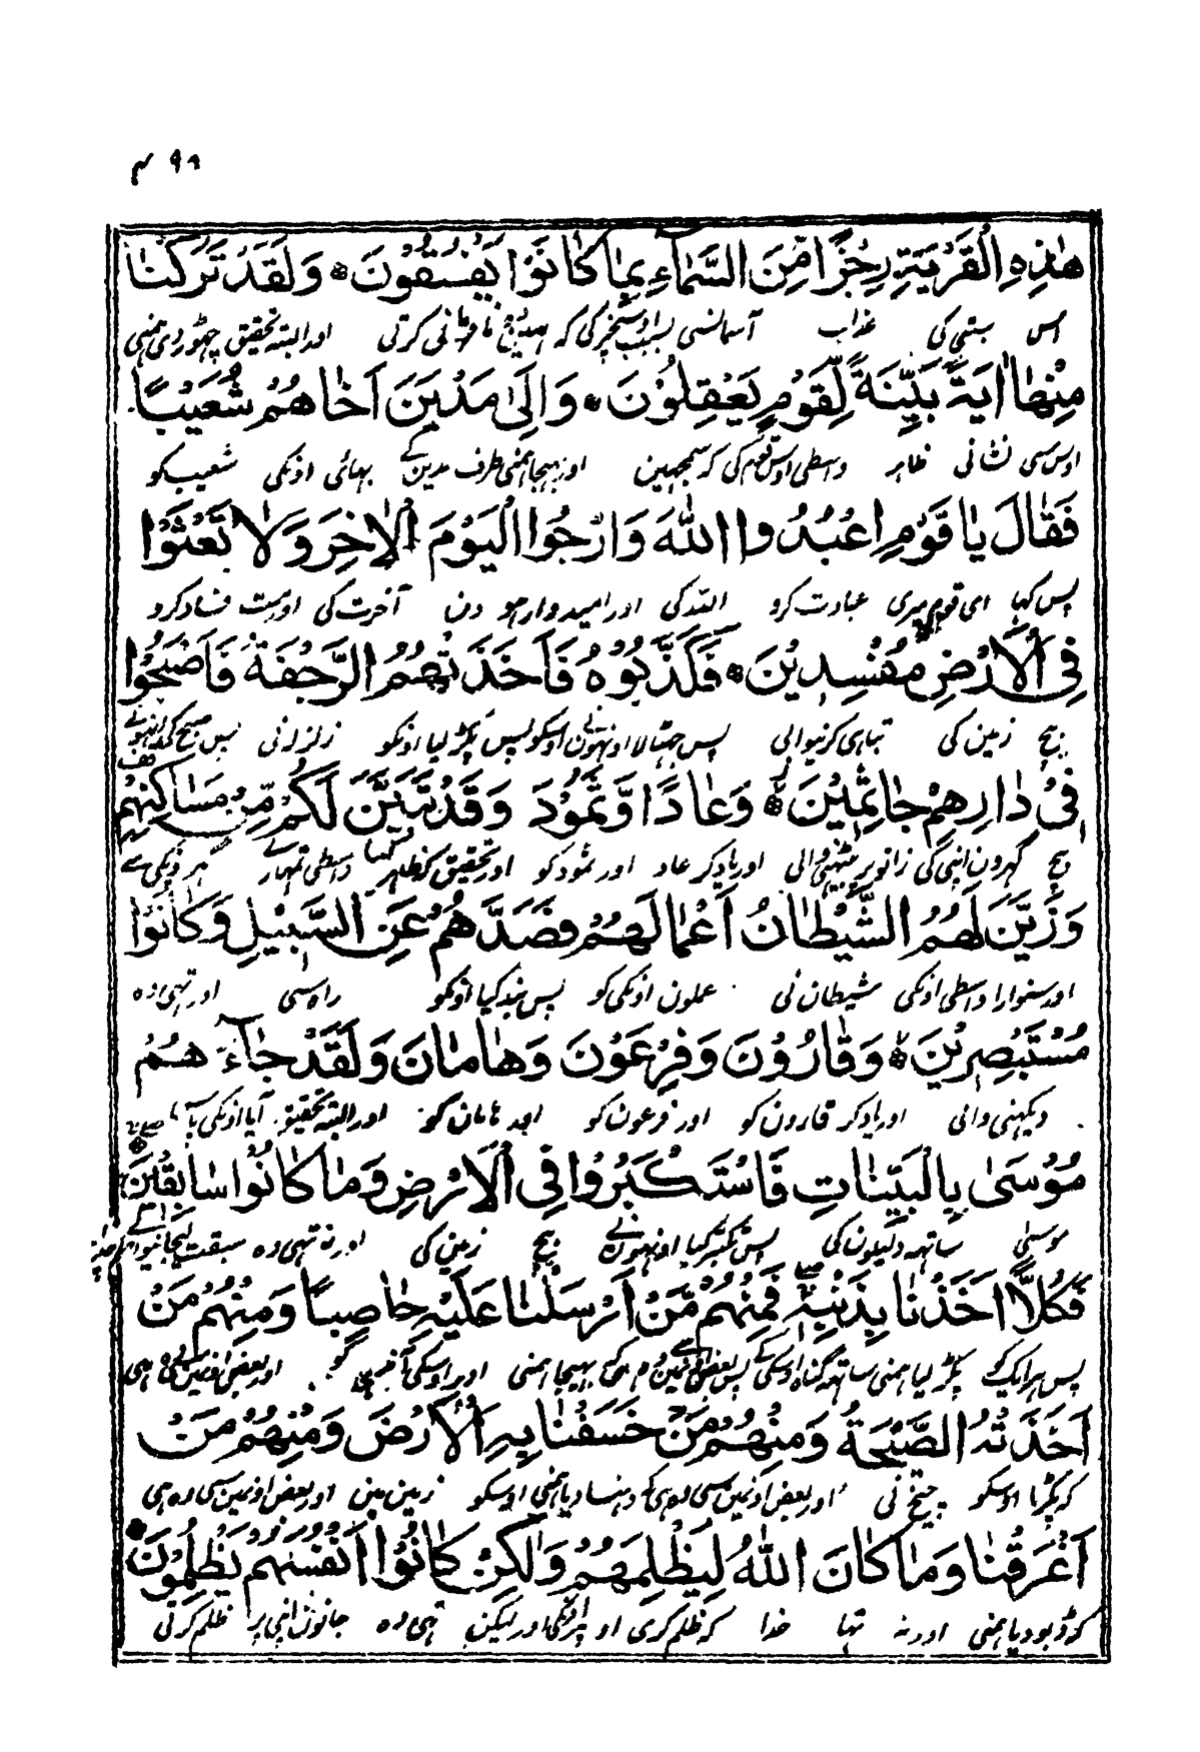 ۴۹۸
هٰذِهِ الْقَرْيَةِ رِجْزًا مِّنَ السَّمَآءِ بِمَا كَانُوْا يَفْسُقُوْنَ وَلَقَدْ تَرَكْنَا
اس بستی کی عذاب آسمانسی بسبب اوسچیز کی کہ نافرمانی کرتی اور البتہ تحقیق چھوڑدی ہمنی
مِنْهَا اٰيَةً بَيِّنَةً لِّقَوْمٍ يَعْقِلُوْنَ وَاِلٰى مَدْيَنَ اَخَاهُمْ شُعَيْبًا
اوس سی نشانی ظاہر واسطی اوس قوم کی کہ سمجہین اور بہیجا ہمنی طرف مدین کے بہائی اونکی شعیب کو
فَقَالَ يَا قَوْمِ اعْبُدُوا اللّٰهَ وَارْجُوا الْيَوْمَ الْاٰخِرَ وَلَا تَعْثَوْا
پس کہا ای قوم میری عبادت کرو اللہ کی اور امیدوار ہو دن آخرت کی اور مت فساد کرو
فِى الْاَرْضِ مُفْسِدِيْنَ فَكَذَّبُوْهُ فَاَخَذَتْهُمُ الرَّجْفَةُ فَاَصْبَحُوْا
بیچ زمین کی تباہی کرنیوالی پس جہٹلایا اونہون نے اوسکو پس پکڑ لیا اونکو زلزلہ نی پس صبح کی اونہون نے
فِىْ دَارِهِمْ جَاثِمِيْنَ وَعَادًا وَّثَمُوْدَ وَقَدْ تَبَيَّنَ لَكُمْ مِّنْ مَسَاكِنِهِمْ
بیچ گہرون اپنی کی زانو پر بیٹہنی والی اور یاد کر عاد اور ثمود کو اور تحقیق ظاہر واسطی تمہارے
وَزَيَّنَ لَهُمُ الشَّيْطَانُ اَعْمَالَهُمْ فَصَدَّهُمْ عَنِ السَّبِيْلِ وَكَانُوْا
اور سنوارا واسطی اونکی شیطان نی عملون اونکی کو پس بند کیا اونکو راہ سی اور تہی وہ
مُسْتَبْصِرِيْنَ وَقَارُوْنَ وَفِرْعَوْنَ وَهَامَانَ وَلَقَدْ جَآءَهُمْ
دیکہنی والی اور یاد کر قارون کو اور فرعون کو اور ہامان کو اور البتہ تحقیق آیا اونکی پاس
مُوْسٰى بِالْبَيِّنَاتِ فَاسْتَكْبَرُوْا فِى الْاَرْضِ وَمَا كَانُوْا سَابِقِيْنَ
موسیٰ ساتہہ دلیلون کی پس تکبر کیا اونہون نے بیچ زمین کی اور نہ تہی وہ سبقت
فَكُلًّا اَخَذْنَا بِذَنْبِهٖ فَمِنْهُمْ مَّنْ اَرْسَلْنَا عَلَيْهِ حَاصِبًا وَمِنْهُمْ مَنْ
پس ہر ایک کو پکڑ لیا ہمنی ساتہہ گناہ اوسکی کے پس بعض اونمین وہ ہی کہ بہیجا ہمنی اوپر اوسکی
اَخَذَتْهُ الصَّيْحَةُ وَمِنْهُمْ مَنْ خَسَفْنَا بِهِ الْاَرْضَ وَمِنْهُمْ مَنْ
کہ پکڑا اوسکو چیخ نی اور بعض اونمین سی وہ ہی کہ دہنسا دیا ہمنی اوسکو زمین مین اور بعض اونمین سی وہ ہی
اَغْرَقْنَا وَمَا كَانَ اللّٰهُ لِيَظْلِمَهُمْ وَلٰكِنْ كَانُوْا اَنْفُسَهُمْ يَظْلِمُوْنَ
کہ ڈبو دیا ہمنی اور نہ تہا خدا کہ ظلم کری اوپر اونکی اور لیکن تہی وہ جانون اپنی پر ظلم کرتی